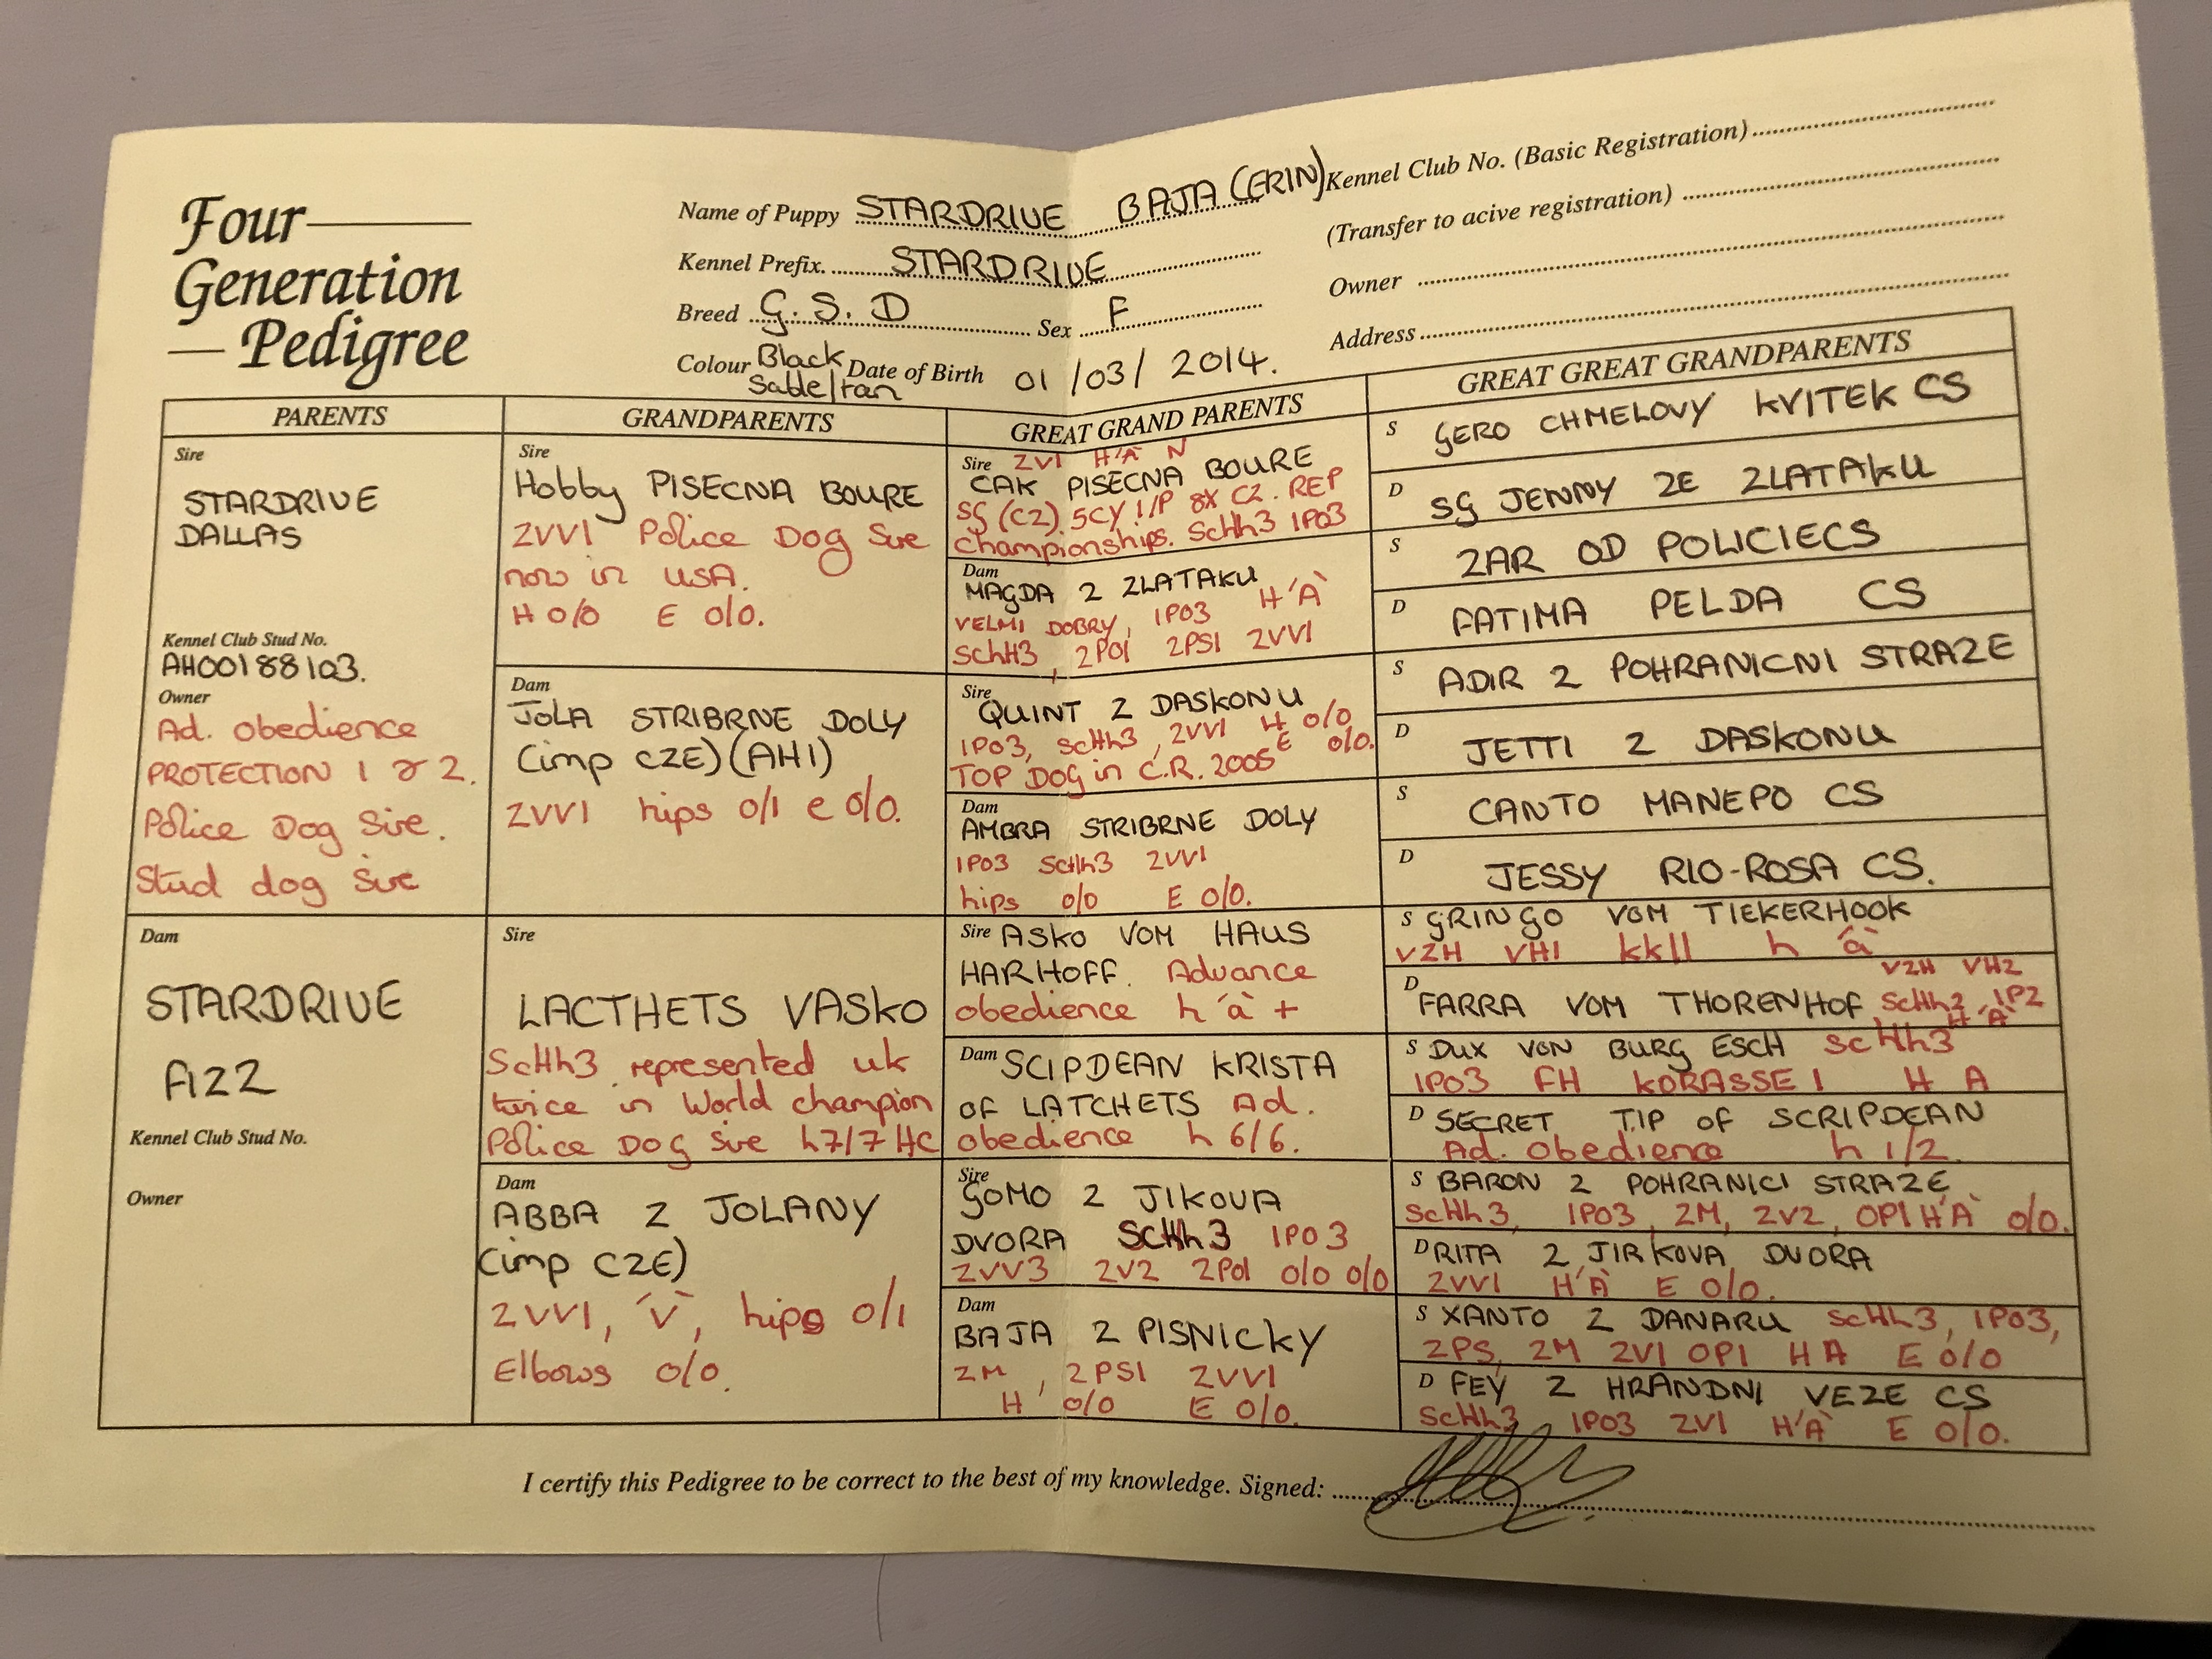 Four
Generation
Pedigree
Name of Puppy STARDRIVE BAJA (ERIN)
Kennel Prefix. STARDRIVE
Breed G.S.D Sex F
Colour Black Sable/tan Date of Birth 01/03/2014.
Kennel Club No. (Basic Registration)
(Transfer to acive registration)
Owner
Address
PARENTS
Sire
STARDRIVE
DALLAS
Kennel Club Stud No.
AH00188103.
Owner
Ad. obedience
PROTECTION 1 & 2.
Police Dog Sire.
Stud dog Sire
Dam
STARDRIVE
FIZZ
Kennel Club Stud No.
Owner
GRANDPARENTS
Sire
Hobby PISECNA BOURE
ZVV1 Police Dog Sire
now in USA.
H 0/0 E 0/0.
Dam
JOLA STRIBRNE DOLY
(imp CZE) (AH1)
ZVV1 hips 0/1 e 0/0.
Sire
LACTHETS VASKO
ScHh3 represented uk
twice in World champion
Police Dog Sire h7/7 HC
Dam
ABBA Z JOLANY
(imp CZE)
ZVV1, 'V', hips 0/1
Elbows 0/0.
GREAT GRAND PARENTS
Sire ZV1 H'A' N
CAK PISECNA BOURE
SG (CZ) 5CY 1/P 8X CZ. REP
Championships. ScHh3 IPO3
Dam
MAGDA Z ZLATAKU
VELMI DOBRY, IPO3 H'A'
SchH3, ZPO1 ZPS1 ZVV1
Sire
QUINT Z DASKONU
IPO3, ScHh3, ZVV1 H 0/0
E 0/0.
TOP DOG in C.R. 2005
Dam
AMBRA STRIBRNE DOLY
IPO3 ScHh3 ZVV1
hips 0/0 E 0/0.
Sire ASKO VOM HAUS
HARHOFF. Advance
obedience h 'a' +
Dam SCIPDEAN KRISTA
OF LATCHETS Ad.
obedience h 6/6.
Sire
GOMO Z JIKOVA
DVORA ScHh3 IPO3
ZVV3 ZV2 ZPO1 0/0 0/0
Dam
BAJA Z PISNICKY
ZM, ZPS1 ZVV1
H 0/0 E 0/0.
GREAT GREAT GRANDPARENTS
S GERO CHMELOVY KVITEK CS
D SG JENNY ZE ZLATAKU
S ZAR OD POLICIECS
D FATIMA PELDA CS
S ADIR Z POHRANICNI STRAZE
D JETTI Z DASKONU
S CANTO MANEPO CS
D JESSY RIO-ROSA CS.
S GRINGO VOM TIEKERHOOK
VZH VH1 kkll h 'a'
VZH VH2
D FARRA VOM THORENHOF ScHh2 IP2
H 'A'
S DUX VON BURG ESCH ScHh3
IPO3 FH KORASSE 1 H A
D SECRET TIP OF SCRIPDEAN
Ad. obedience h 1/2.
S BARON Z POHRANICI STRAZE
ScHh3, IPO3, ZM, ZV2, OP1 H'A' 0/0.
D RITA Z JIRKOVA DVORA
ZVV1 H'A' E 0/0.
S XANTO Z DANARU ScHh3, IPO3,
ZPS, ZM ZV1 OP1 H A E 0/0
D FEY Z HRANDNI VEZE CS
ScHh3 IPO3 ZV1 H'A' E 0/0.
I certify this Pedigree to be correct to the best of my knowledge. Signed: